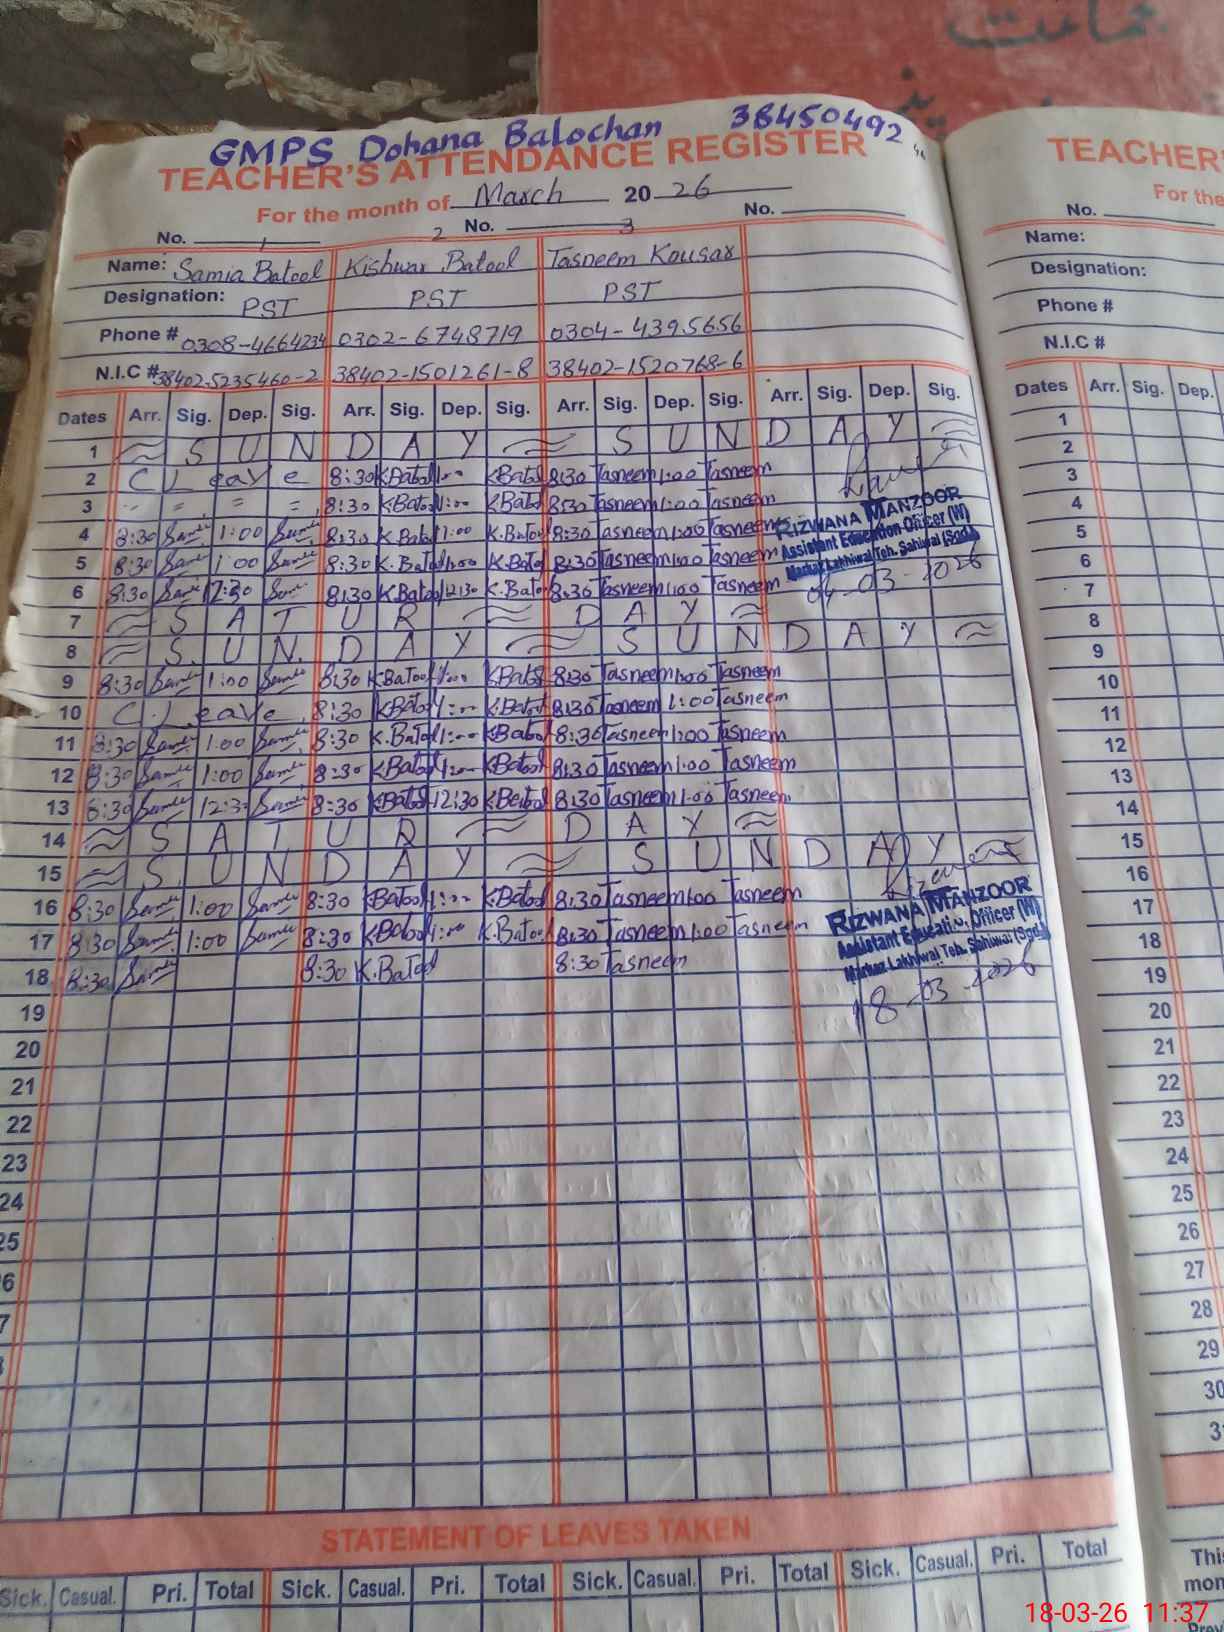 جماعت
GMPS Dohana Balochan 38450492
TEACHER'S ATTENDANCE REGISTER
For the month of March 2026
No. 1 2 No. 3 No.
Name: Samia Batool Kishwar Batool Tasneem Kousar
Designation: PST PST PST
Phone # 0308-4664234 0302-6748719 0304-4395656
N.I.C # 38402-5235460-2 38402-1501261-8 38402-1520768-6
Dates Arr. Sig. Dep. Sig. Arr. Sig. Dep. Sig. Arr. Sig. Dep. Sig. Arr. Sig. Dep. Sig.
1 SUNDAY SUNDAY
2 C Leave 8:30 K.Batool 1:00 K.Batool 8:30 Tasneem 1:00 Tasneem
3 " = = 8:30 K.Batool 1:00 K.Batool 8:30 Tasneem 1:00 Tasneem
4 8:30 Samia 1:00 Samia 8:30 K.Batool 1:00 K.Batool 8:30 Tasneem 1:00 Tasneem
5 8:30 Samia 1:00 Samia 8:30 K.Batool 1:00 K.Batool 8:30 Tasneem 1:00 Tasneem
6 8:30 Samia 12:30 Samia 8:30 K.Batool 12:30 K.Batool 8:30 Tasneem 1:00 Tasneem
RIZWANA MANZOOR
Assistant Education Officer (W)
Markaz Lakhiwal Teh. Sahiwal (Sgd)
04-03-2026
7 SATURDAY
8 SUNDAY SUNDAY
9 8:30 Samia 1:00 Samia 8:30 K.Batool 1:00 K.Batool 8:30 Tasneem 1:00 Tasneem
10 C.Leave 8:30 K.Batool 1:00 K.Batool 8:30 Tasneem 1:00 Tasneem
11 8:30 Samia 1:00 Samia 8:30 K.Batool 1:00 K.Batool 8:30 Tasneem 1:00 Tasneem
12 8:30 Samia 1:00 Samia 8:30 K.Batool 1:00 K.Batool 8:30 Tasneem 1:00 Tasneem
13 8:30 Samia 12:30 Samia 8:30 K.Batool 12:30 K.Batool 8:30 Tasneem 1:00 Tasneem
14 SATURDAY
15 SUNDAY SUNDAY
16 8:30 Samia 1:00 Samia 8:30 K.Batool 1:00 K.Batool 8:30 Tasneem 1:00 Tasneem
17 8:30 Samia 1:00 Samia 8:30 K.Batool 1:00 K.Batool 8:30 Tasneem 1:00 Tasneem
18 8:30 Samia 8:30 K.Batool 8:30 Tasneem
RIZWANA MANZOOR
Assistant Education Officer (W)
Markaz Lakhiwal Teh. Sahiwal (Sgd)
18-03-2026
19
20
21
22
23
24
25
6
7
STATEMENT OF LEAVES TAKEN
Sick. Casual. Pri. Total Sick. Casual. Pri. Total Sick. Casual. Pri. Total Sick. Casual. Pri. Total
TEACHER'
For the
No.
Name:
Designation:
Phone #
N.I.C #
Dates Arr. Sig. Dep.
1
2
3
4
5
6
7
8
9
10
11
12
13
14
15
16
17
18
19
20
21
22
23
24
25
26
27
28
29
30
3
This
mon
Prev
18-03-26 11:37